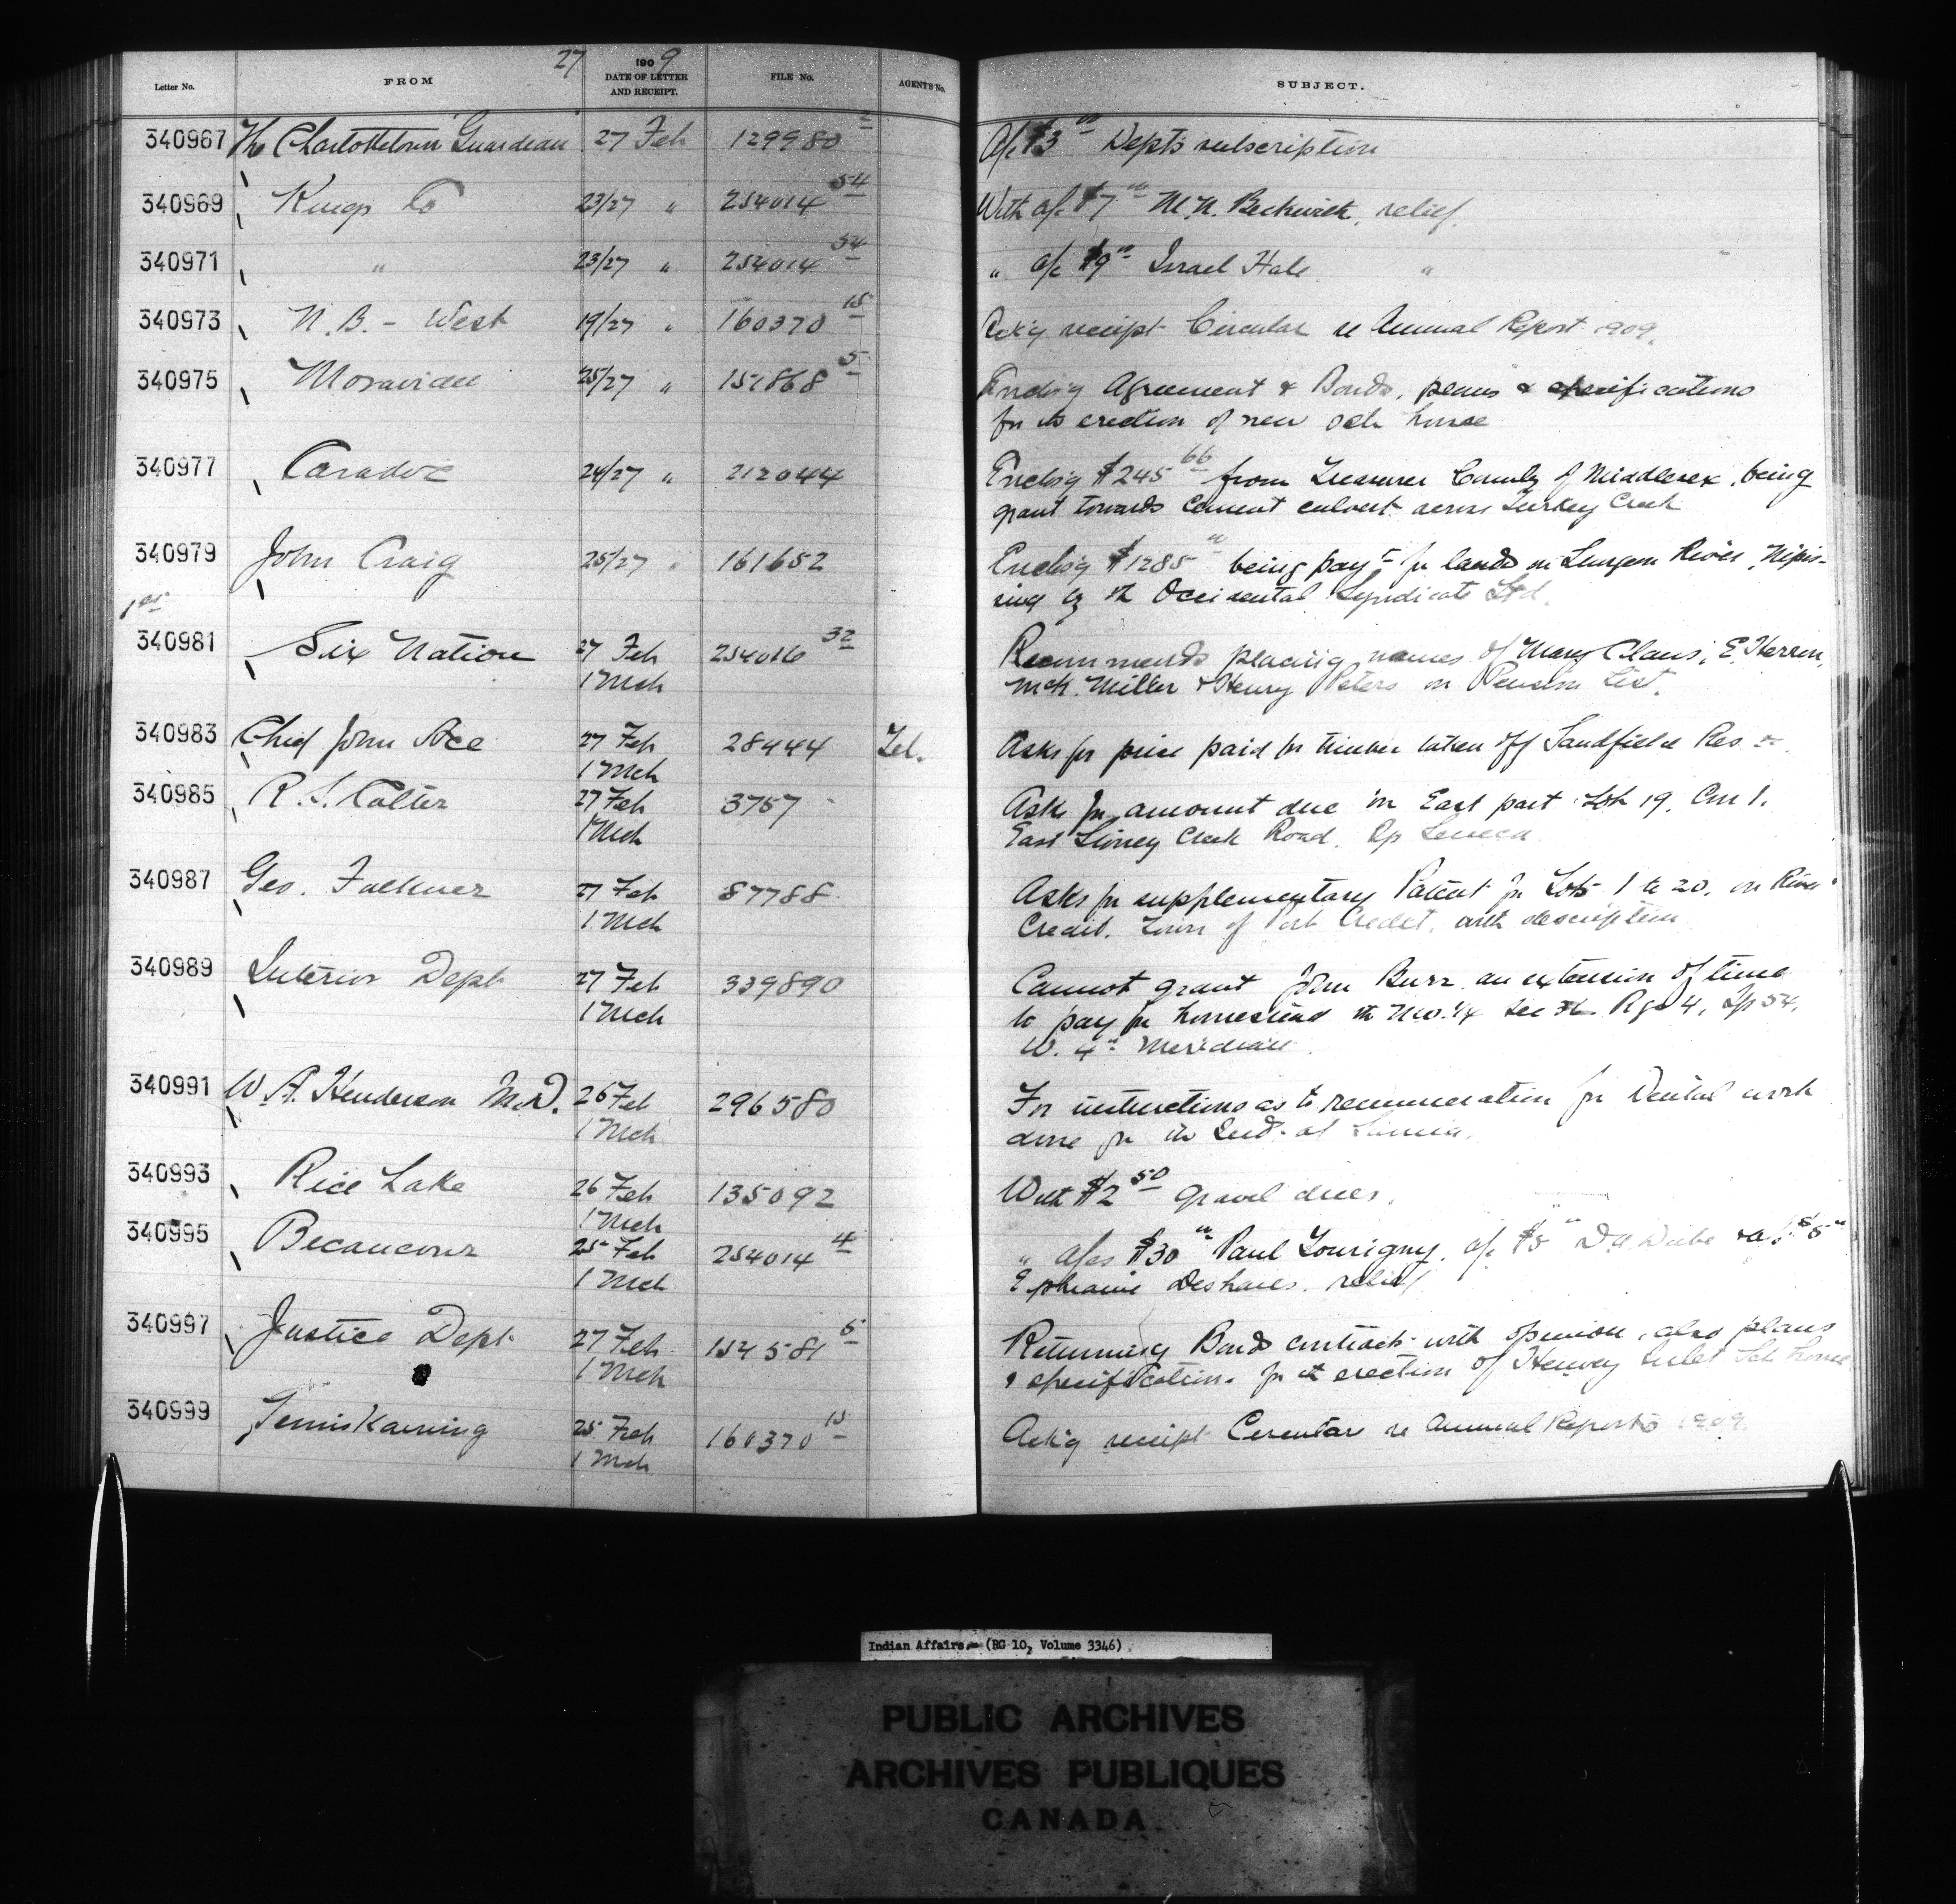 27
Letter No. FROM 1909 DATE OF LETTER AND RECEIPT. FILE No. AGENTS No. SUBJECT.
340967 The Charlottetown Guardian 27 Feb 129980 A/c $3 00 Dept's subscription
340969 Kings Co 23/27 " 254014 54 With a/c $7 00 M.N. Beckwith, relief
340971 " 23/27 " 254014 54 " a/c $9 00 Israel Hale "
340973 N.B. - West 19/27 " 160370 15 Ack'g receipt Circular re Annual Report 1909.
340975 Moravian 25/27 " 151868 5 Enclos'g Agreement & Bonds, plans & specifications
for the erection of new sch house
340977 Caradoc 24/27 " 212044 Enclos'g $245 66 from Treasurer County of Middlesex, being
grant towards cement culvert across Turkey Creek
340979 John Craig 25/27 " 161652 Enclos'g $1285 00 being pay't for lands on Sturgeon River, Nipis-
sing by the Occidental Syndicate Ltd.
1st
340981 Six Nation 27 Feb 254016 32 Recommends placing names of Mary Claus, E. Herron,
1 Mch Mch. Miller & Henry Peters on Pension List.
340983 Chief John Ace 27 Feb 28444 Tel. Asks for price paid for timber taken off Sandfield Res.
1 Mch
340985 R. S. Colter 27 Feb 3757 Asks for amount due on East part Lot 19, Con 1.
1 Mch East Stoney Creek Road, Tp Seneca
340987 Geo. Faulkner 27 Feb 87788 Asks for supplementary Patent for Lots 1 to 20, on River
1 Mch Credit. Town of Port Credit, with description
340989 Interior Dept 27 Feb 339890 Cannot grant John Burr an extension of time
1 Mch to pay for homestead the N.W. 1/4 Sec 36 Rge 4, Tp 54,
W. 4th Meridian
340991 W. A. Henderson M.D. 26 Feb 296580 For instructions as to remuneration for Dental work
1 Mch done for the Inds. at Sarnia.
340993 Rice Lake 26 Feb 135092 With $2 50 gravel dues.
1 Mch
340995 Becancour 25 Feb 254014 4 " a/cs $30 00 Paul Tourigny, a/c $5 00 D. Dube & a/c $5 00
1 Mch Ephraim Deshaies, relief
340997 Justice Dept 27 Feb 154581 5 Returning Bonds contracts with opinion, also plans
1 Mch & specifications for the erection of Henvey Inlet Sch house
340999 Temiskaming 25 Feb 160370 15 Ack'g receipt Circular re Annual Reports 1909.
1 Mch
Indian Affairs. (RG 10, Volume 3346)
PUBLIC ARCHIVES
ARCHIVES PUBLIQUES
CANADA